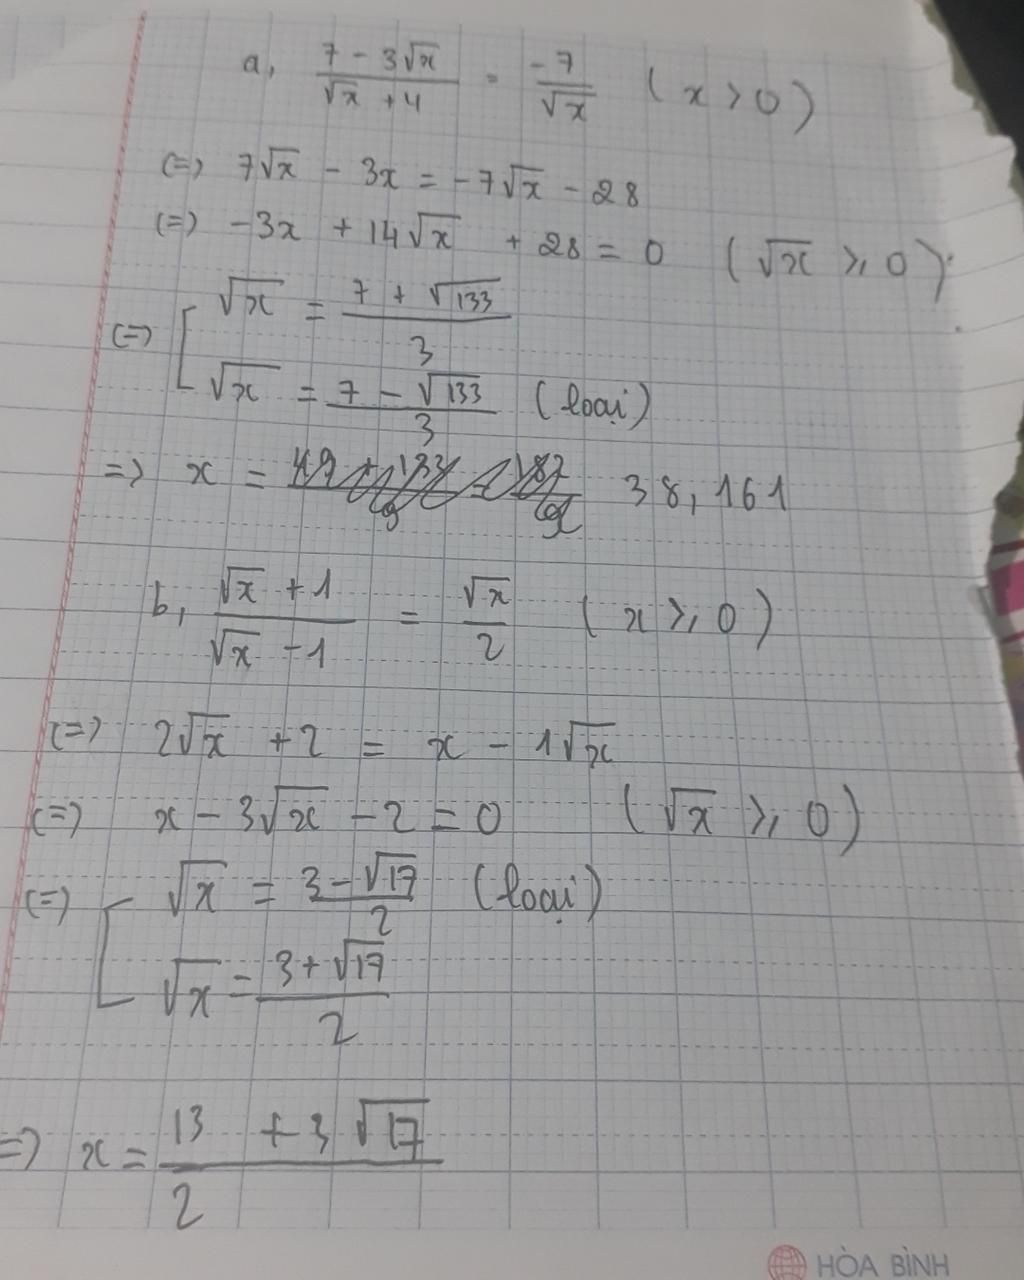 a, (7 - 3√x)/(√x + 4) = -7/√x (x > 0)
(=) 7√x - 3x = -7√x - 28
(=) -3x + 14√x + 28 = 0 (√x ⩾ 0)
(=) [ √x = (7 + √133)/3
√x = (7 - √133)/3 (loại)
=) x = 38,161
b, (√x + 1)/(√x - 1) = √x/2 (x ⩾ 0)
(=) 2√x + 2 = x - 1√x
(=) x - 3√x - 2 = 0 (√x ⩾ 0)
(=) [ √x = (3 - √17)/2 (loại)
√x = (3 + √17)/2
=) x = (13 + 3√17)/2
HÒA BÌNH